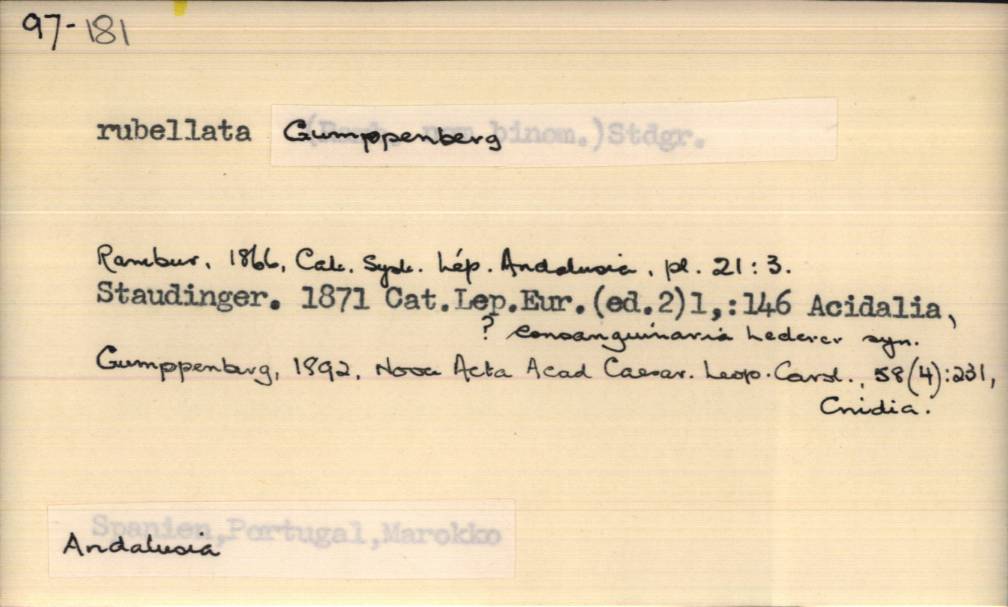 97-181
rubellata Gumppenberg
binom.)Stdgr.
Rambur, 1866, Cat. Syst. Lép. Andalusie, pl. 21:3.
Staudinger. 1871 Cat.Lep.Eur.(ed.2)1,:146 Acidalia,
? consanguinaria Lederer syn.
Gumppenberg, 1892, Nova Acta Acad Caesar. Leop. Carol., 58(4):231,
Cnidia.
Spanien,Portugal,Marokko
Andalusia